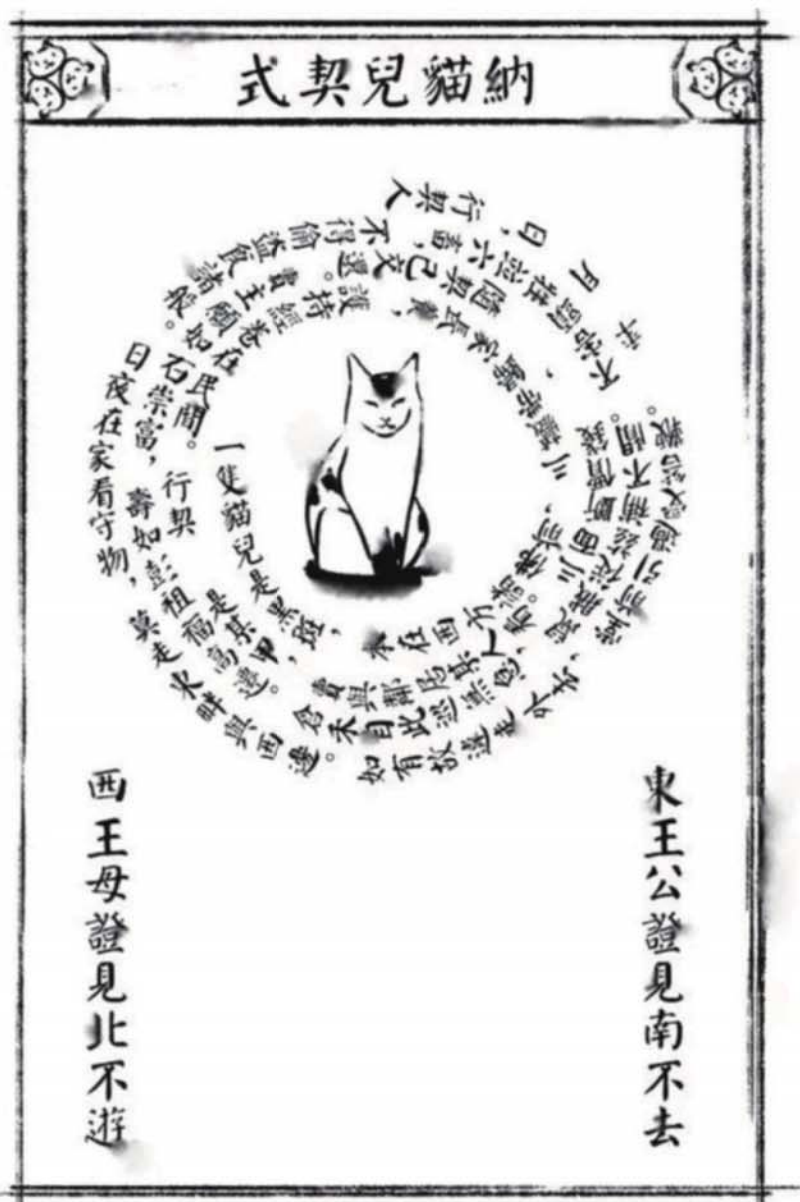 納貓兒契式
一隻貓兒是黑斑，本在西方諸佛前，三藏帶歸家長養，護持經卷在民間。行契是某甲，賣與鄰居某丁看。三面斷價錢，隨契已交還。貴主願如石崇富，壽如彭祖福高遷。倉禾自此巡無怠，鼠賊從茲捕不閑。不害頭牲並六畜，不得偷盜食諸般。日夜在家看守物，莫走東畔與西邊。如有故違走外去，堂前引過受笞鞭。
年 月 日，行契人
東王公證見南不去
西王母證見北不遊